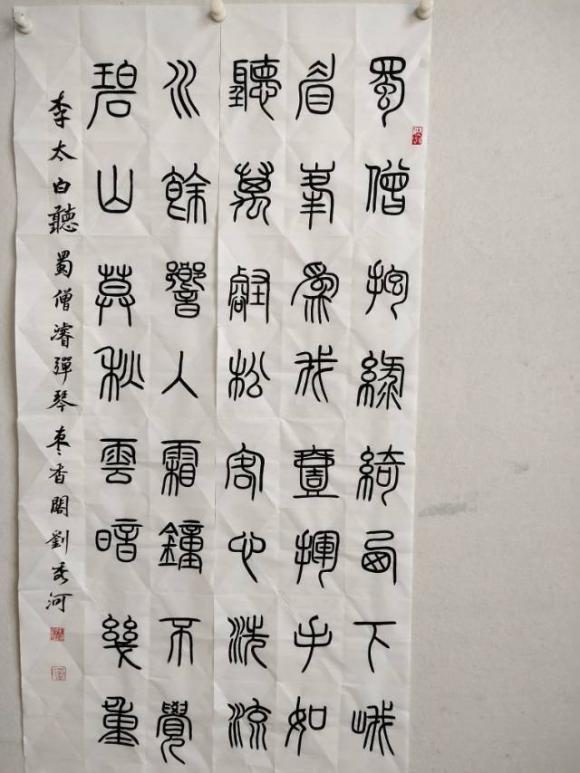 蜀僧抱綠綺西下峨
眉峯為我壹揮手如
聽萬壑松客心洗流
水餘響入霜鐘不覺
碧山莫秋雲暗幾重
李太白聽蜀僧濬彈琴棗香閣劉秀河